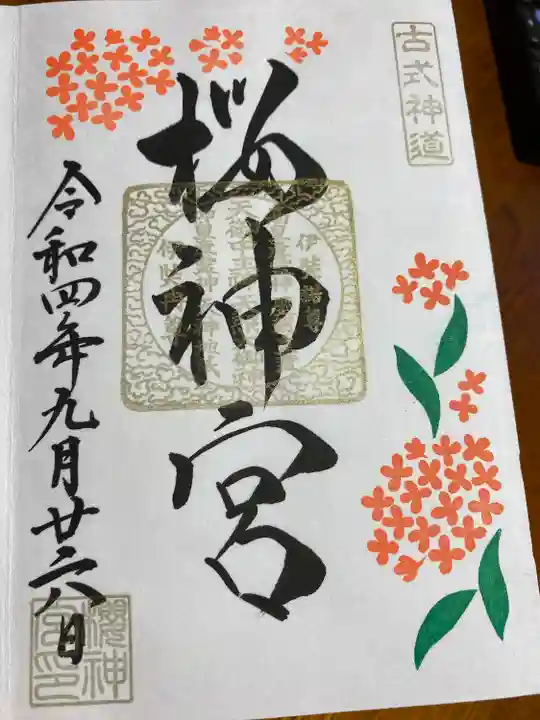 古式神道
桜神宮
令和四年九月廿六日
櫻神
宮印